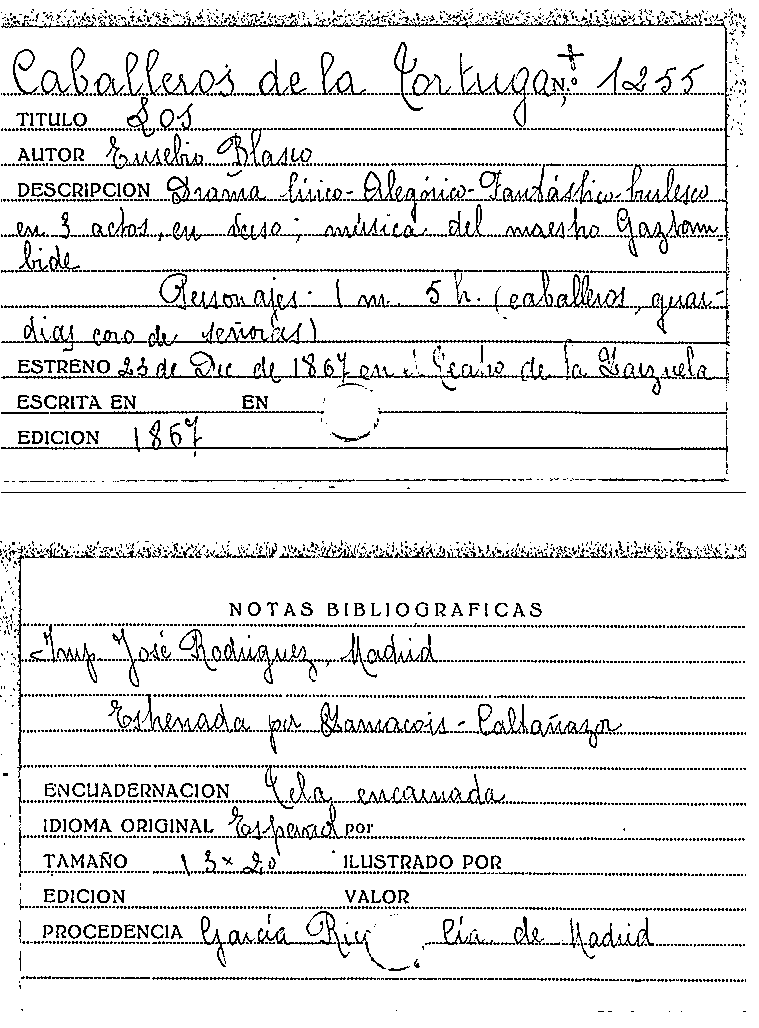 Caballeros de la Tortuga, N.º 1255
TITULO Los
AUTOR Eusebio Blasco
DESCRIPCION Drama lírico-Alegórico-Fantástico burlesco
en 3 actos, en verso; música del maestro Gaztam-
bide
Personajes - 1 m. 5 h. (caballeros, guar-
dias coro de señoras)
ESTRENO 23 de Dic de 1867 en el Teatro de la Zarzuela
ESCRITA EN EN
EDICION 1867
NOTAS BIBLIOGRAFICAS
Imp José Rodríguez, Madrid
Estrenada por Zamacois - Caltañazor
ENCUADERNACION Tela encarnada
IDIOMA ORIGINAL Español por
TAMAÑO 13 x 20 ILUSTRADO POR
EDICION VALOR
PROCEDENCIA García Rico Cía. de Madrid